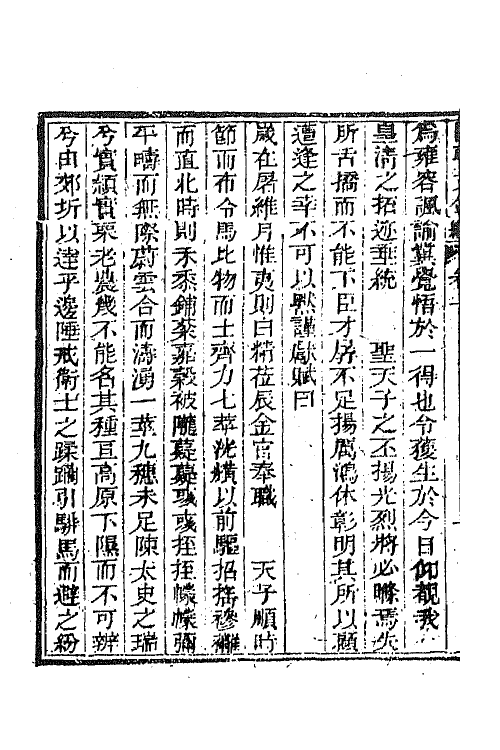 爲雍容諷諭冀覺悟於一得也令獲生於今日仰覩我
皇清之拓迹垂統 聖天子之丕揚光烈將必瞭焉失
所舌撟而不能下臣才孱不足揚厲鴻休彰明其所以顧
遭逢之幸不可以默謹獻賦曰
歲在屠維月惟夷則日精莅辰金官奉職 天子順時
節而布令馬比物而士齊力七萃洸横以前驅招搖穆離
而直北時則禾黍鋪棻嘉穀被隴薿薿彧彧挃挃幪幪彌
平疇而無際蔚雲合而濤湧一莖九穗未足陳太史之瑞
兮實穎實栗老農幾不能名其種亘高原下隰而不可辨
兮由郊圻以達乎邊陲戒衛士之蹂躪引騑馬而避之紛